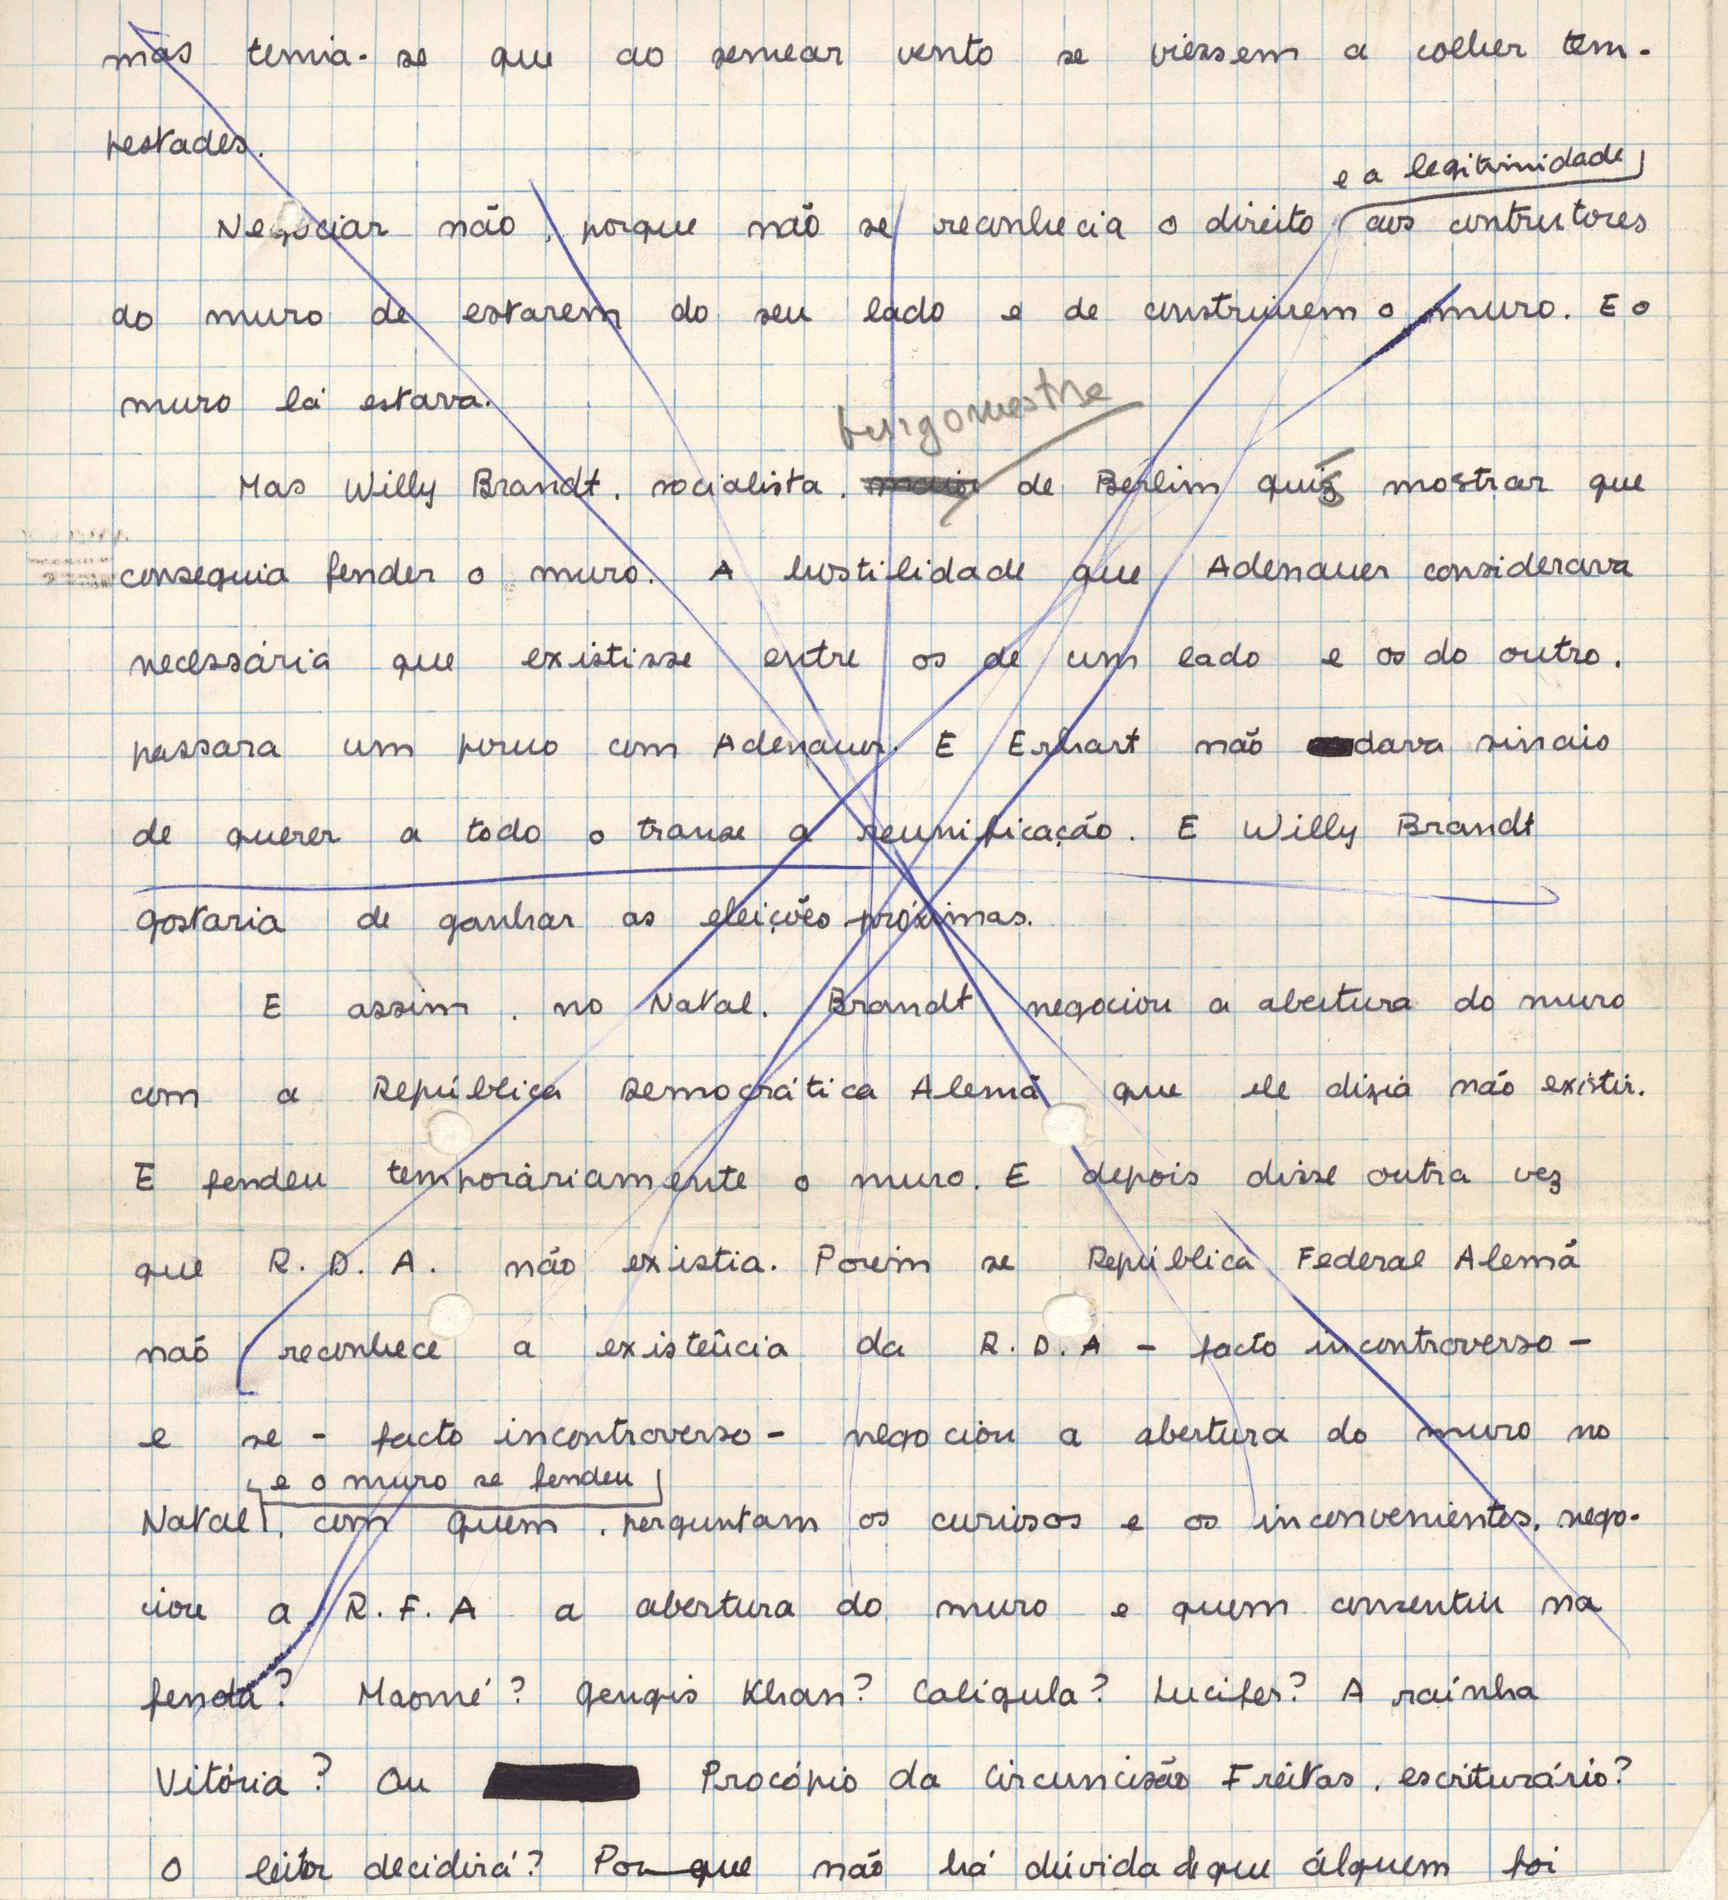 mas temia-se que ao semear vento se viessem a colher tem-
pestades.
e a legitimidade
Negociar não, porque não se reconhecia o direito aos contrutores
do muro de estarem do seu lado e de construirem o muro. E o
muro lá estava.
burgomestre
Mas Willy Brandt, socialista, maior de Berlim quis mostrar que
conseguia fender o muro. A hostilidade que Adenauer considerava
necessária que existisse entre os de um lado e os do outro,
passara um pouco com Adenauer. E Erhart não dava sinais
de querer a todo o transe a reunificação. E Willy Brandt
gostaria de ganhar as eleições próximas.
E assim, no Natal, Brandt negociou a abertura do muro
com a República Democrática Alemã que ele dizia não existir.
E fendeu temporáriamente o muro. E depois disse outra vez
que R.D.A. não existia. Porém se República Federal Alemã
não reconhece a existência da R.D.A - facto incontroverso -
e se - facto incontroverso - negociou a abertura do muro no
e o muro se fendeu
Natal, com quem, perguntam os curiosos e os inconvenientes, nego-
ciou a R.F.A a abertura do muro e quem consentiu na
fenda? Maomé? Gengis Khan? Calígula? Lucifer? A raínha
Vitória? Ou Procópio da Circuncisão Freitas, escriturário?
O leitor decidirá? Por que não há dúvida de que álguem foi